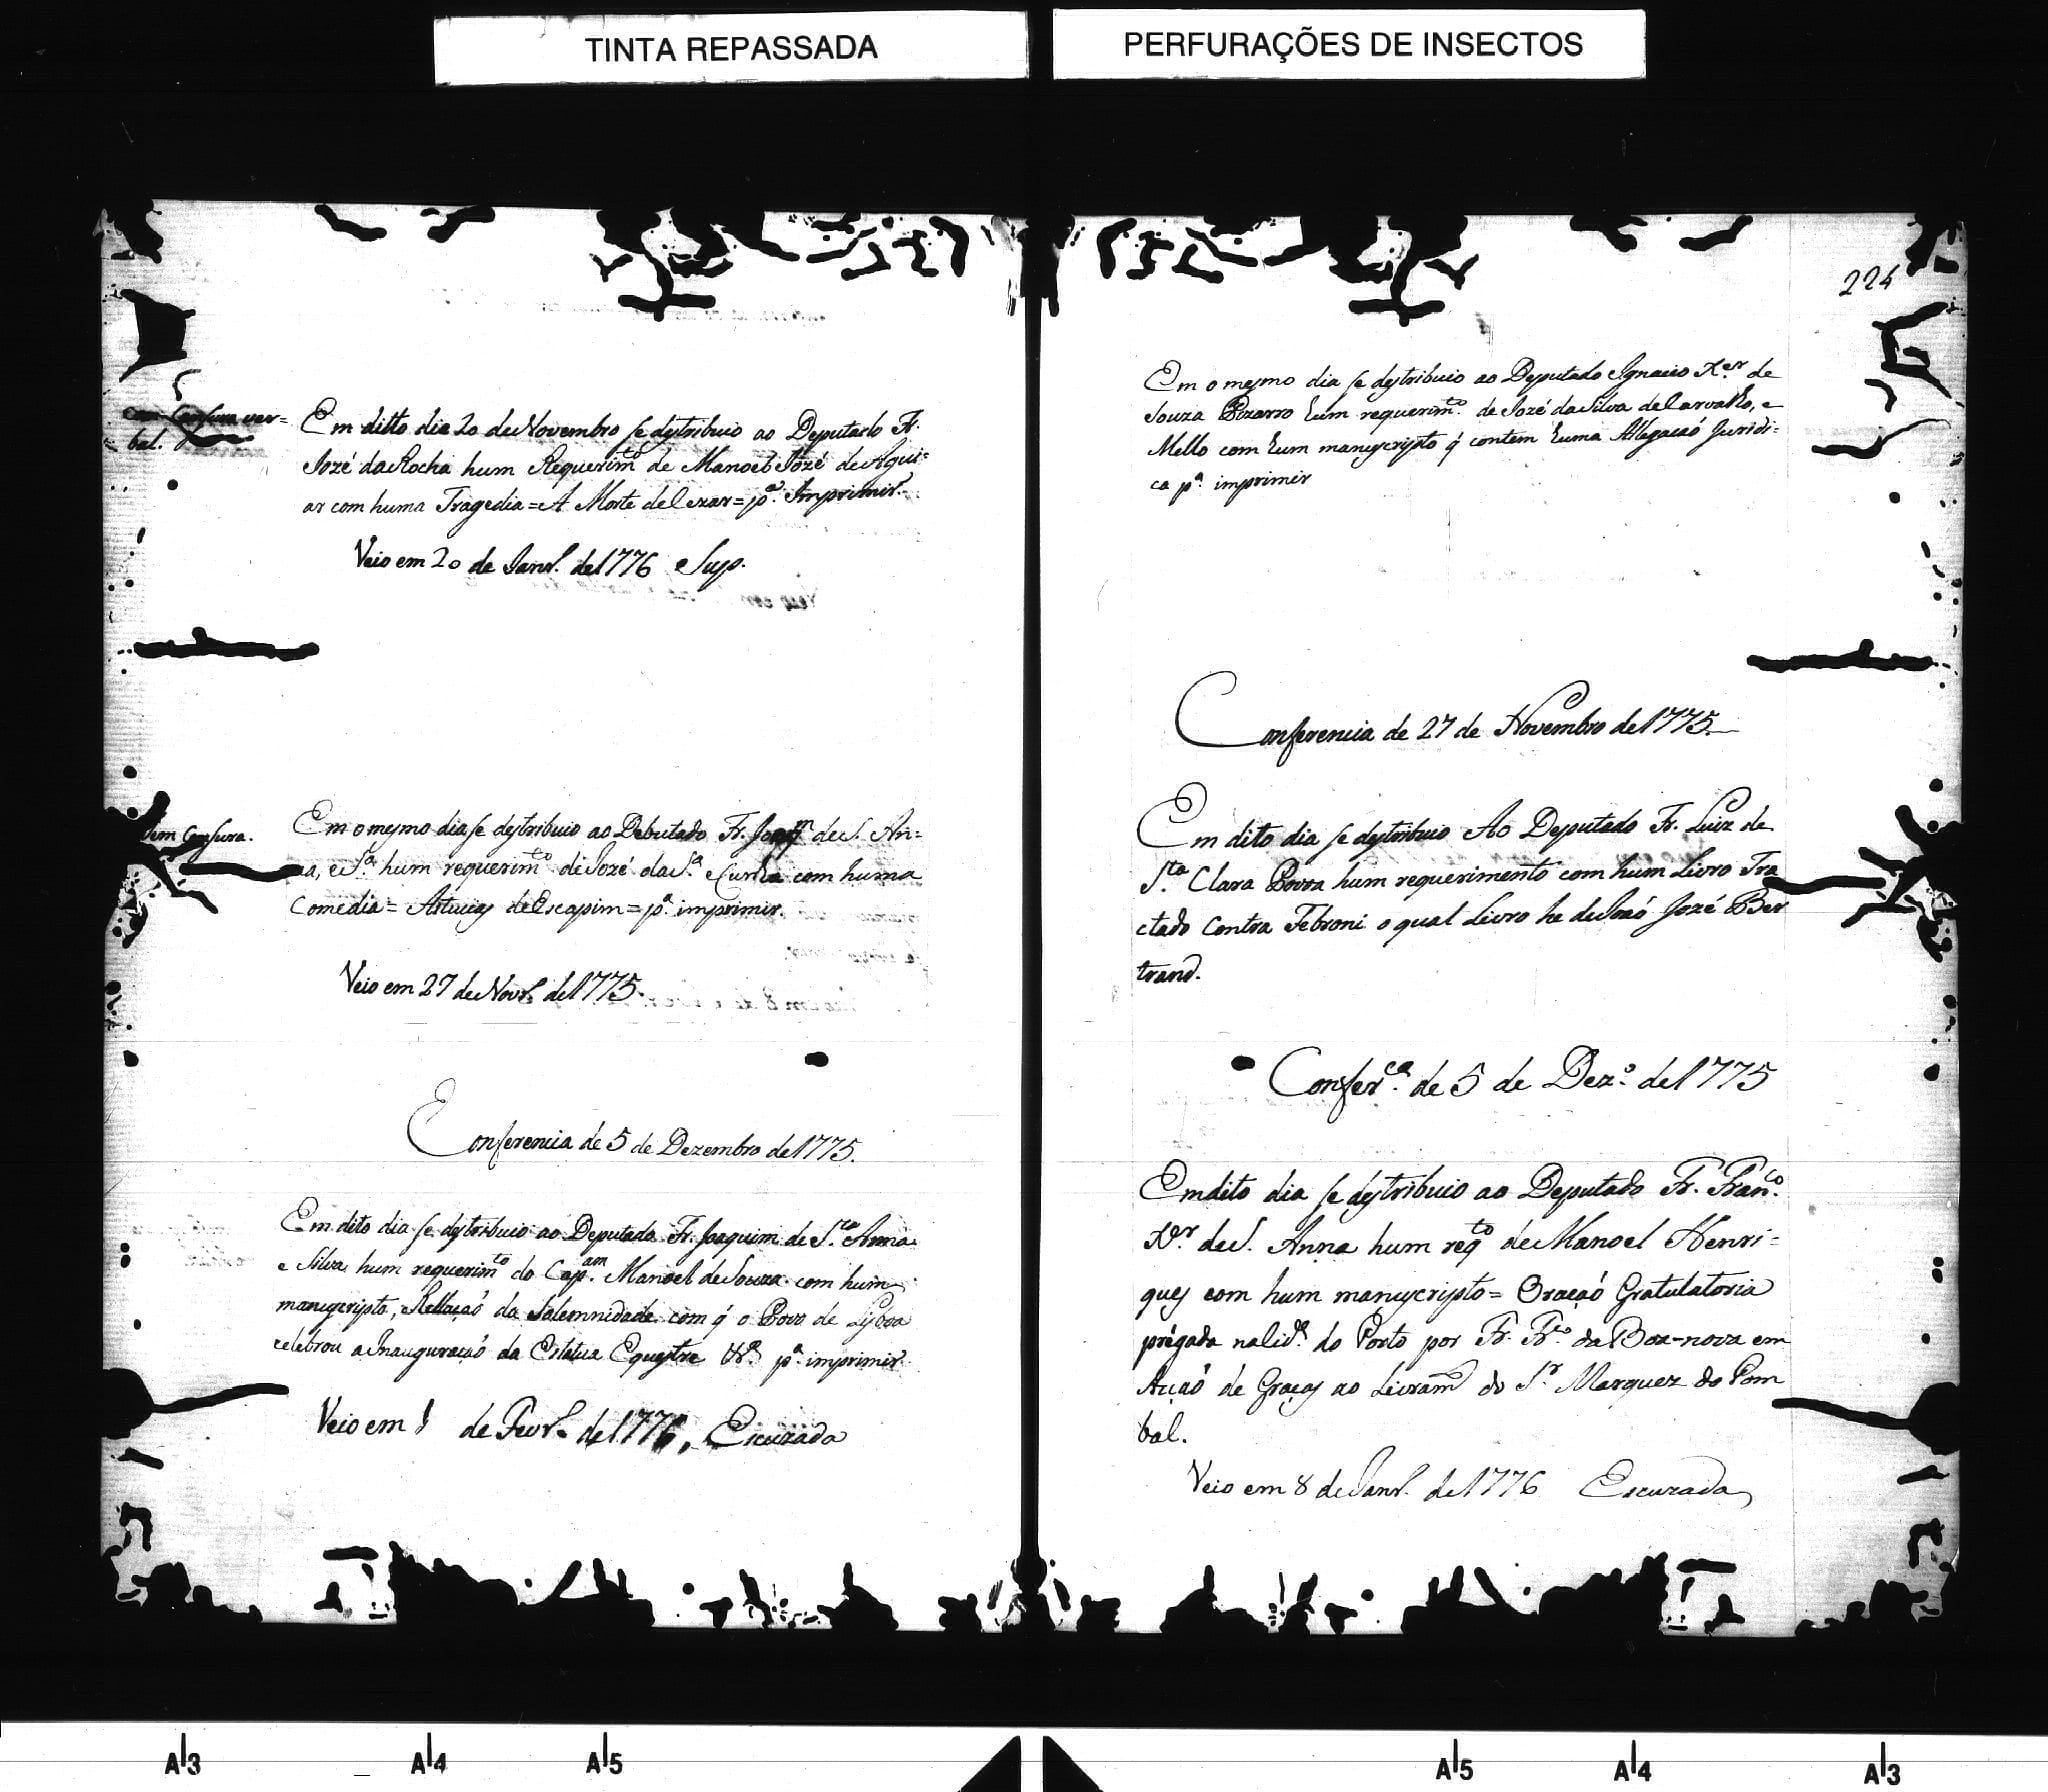 TINTA REPASSADA
PERFURAÇÕES DE INSECTOS
Censura ver=
bal.
Em ditto dia 20 de Novembro se destribuio ao Deputado Fr.
Jozé da Rocha hum Requerim.to de Manoel Jozé de Agui=
ar com huma Tragedia = A Morte de Cezar = p.a Imprimir.
Veio em 20 de Janr.o de 1776 Sup.
Sem Censura.
Em o mesmo dia se destribuio ao Debutado Fr. Joaq.m de S. An=
na, e S.a hum requerim.to de Jozé da S.a e Cunha com huma
Comedia = Astucias de Escapim = p.a imprimir.
Veio em 27 de Novr.o de 1775.
Conferencia de 5 de Dezembro de 1775.
Em dito dia se destribuio ao Deputado Fr. Joaquim de S.ta Anna
e Silva hum requerim.to do Cap.am Manoel de Souza com hum
manuscripto, Rellaçaõ da Solemnidade com q̃ o Povo de Lisboa
celebrou a Inauguraçaõ da Estatua Equestre &.a p.a imprimir.
Veio em 1 de Fevr.o de 1776, Escuzada
224
Em o mesmo dia se destribuio ao Deputado Ignacio X.er de
Souza Pizarro hum requerim.to de Jozé da Silva de Carvalho, e
Mello com hum manuscripto q̃ contem huma Allegacaõ Juridi=
ca p.a imprimir
Conferencia de 27 de Novembro de 1775.
Em dito dia se destribuio Ao Deputado Fr. Luiz de
S.ta Clara Povoa hum requerimento com hum Livro Tra
ctado Contra Febroni o qual Livro he de Joaõ Jozé Ber
trand.
Confer.ca de 5 de Dez.o de 1775
Em dito dia se destribuio ao Deputado Fr. Fran.co
X.er de S. Anna hum req.to de Manoel Henri=
ques com hum manuscripto = Oraçaõ Gratulatoria
prégada na Cid.e do Porto por Fr. Fr.co da Boa-nova em
Acçaõ de Graças ao Livram.to do S.r Marquez do Pom
bal.
Veio em 8 de Janr.o de 1776 Escuzada
A3
A4
A5
A5
A4
A3